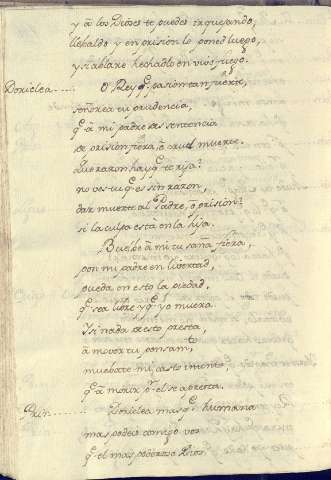 y a los Dioses te puedes ir quejando,
llebaldo y en prision lo poned luego,
y si ablare hechadlo en vivo fuego.
Doriclea..... O Rey q. pasion tan fuerte,
señorea tu prudencia,
q. a mi padre das sentencia
de prision fiera, o cruel muerte.
Que razon hay q. te rija?
no ves tu q. es sin razon,
dar muerte al Padre, o prision?
si la culpa està en la hija.
Buelbe à mi tu saña fiera,
pon mi padre en libertad,
pueda en esto la piedad,
q. sea libre y q. yo muera
I si nada de esto presta,
à mover tu pensam.to
muebate mi casto intento,
q. à morir p.r el se apresta.
Doriclea mas q. humana
mas podeis comigo vos
q. el mas poderoso Dios.